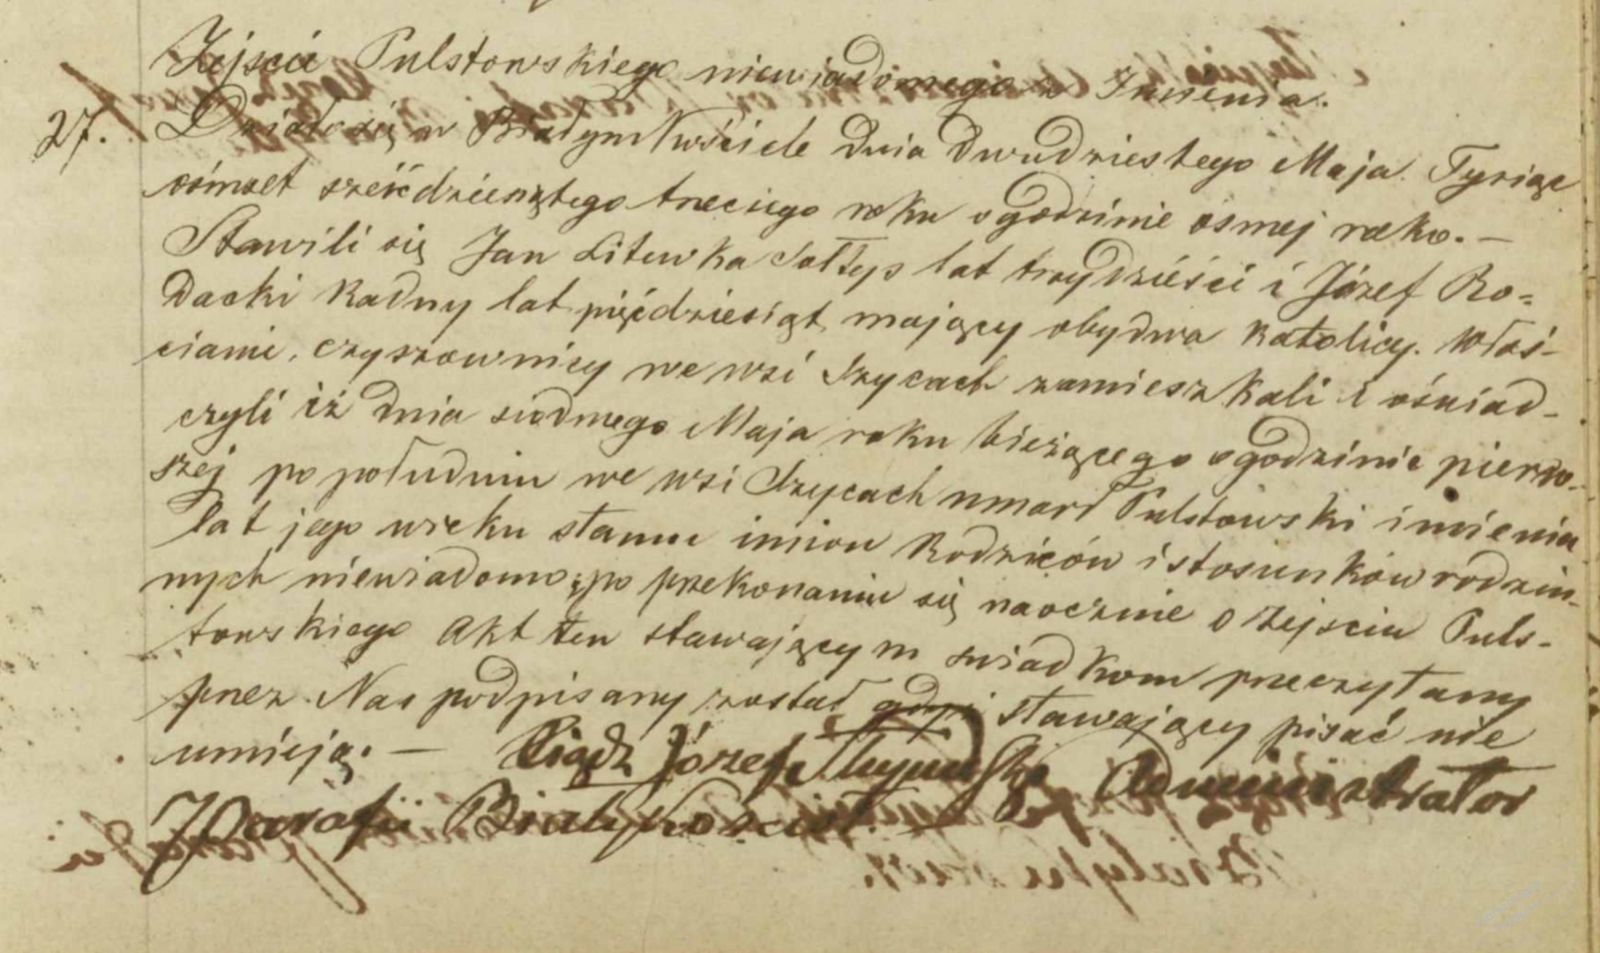 Zejście Pulstowskiego niewiadomego z Imienia.
27. Działo się w Białym Kościele dnia dwudziestego Maja Tysiąc
ośmset sześćdziesiątego trzeciego roku o godzinie osmej rano. —
Stawili się Jan Litewka Sołtys lat trzydzieści i Józef Ro=
dacki Radny lat pięćdziesiąt mający obydwa katolicy. Włoś-
cianie, czynszownicy we wsi Szycach zamieszkali i oświad-
czyli iż dnia siodmego Maja roku bieżącego o godzinie pierw-
szej po południu we wsi Szycach umarł Pulstowski imienia
lat jego wieku stanu imion Rodziców i stosunków rodzin-
nych niewiadomo, po przekonaniu się naocznie o zejściu Puls-
towskiego Akt ten stawającym swiadkom przeczytany
przez Nas podpisany został gdyż stawający pisać nie
umieją. — Xiądz Józef Administrator
Parafii Białykościoł.